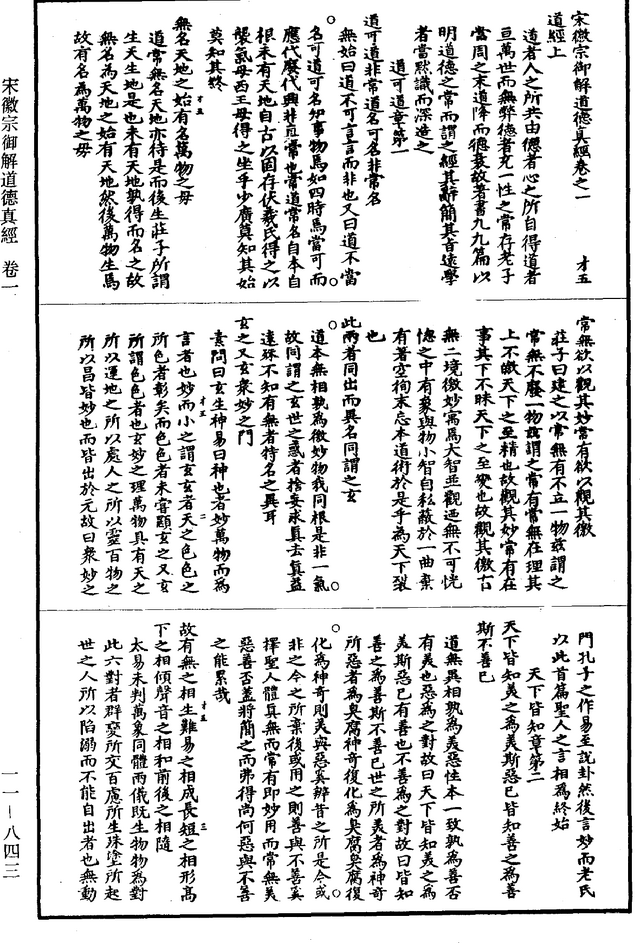 宋徽宗御解道德真經卷之一　才五
道經上
道者人之所共由德者心之所自得道者
亘萬世而無弊德者充一性之常存老子
當周之末道降而德衰故著書九九篇以
明道德之常而謂之經其辭簡其旨遠學
者當默識而深造之
道可道章第一
道可道非常道名可名非常名
無始曰道不可言言而非也又曰道不當
名可道可名如事物焉如四時焉當可而
應代廢代興非真常也常道常名自本自
根未有天地自古以固存伏羲氏得之以
襲氣母西王母得之坐乎少廣莫知其始
莫知其終
無名天地之始有名萬物之母
道常無名天地亦待是而後生莊子所謂
生天生地是也未有天地孰得而名之故
無名為天地之始有天地然後萬物生焉
故有名為萬物之母
常無欲以觀其妙常有欲以觀其徼
莊子曰建之以常無有不立一物茲謂之
常無不廢一物茲謂之常有常無在理其
上不皦天下之至精也故觀其妙常有在
事其下不昧天下之至變也故觀其徼有
無二境徼妙寓焉大智並觀迺無不可恍
惚之中有象與物小智自私蔽於一曲棄
有著空徇末忘本道術於是乎為天下裂
也
此兩者同出而異名同謂之玄
道本無相孰為徼妙物我同根是非一氣
故同謂之玄世之惑者捨妄求真去真益
遠殊不知有無者特名之異耳
玄之又玄眾妙之門
素問曰玄生神易曰神也者妙萬物而為
言者也妙而小之謂玄玄者天之色色之
所色者彰矣而色色者未嘗顯玄之又玄
所謂色色者也玄妙之理萬物具有天之
所以運地之所以處人之所以靈百物之
所以昌皆妙也而皆出於元故曰眾妙之
門孔子之作易至說卦然後言妙而老氏
以此首篇聖人之言相為終始
天下皆知章第二
天下皆知美之為美斯惡已皆知善之為善
斯不善已
道無異相孰為美惡性本一致孰為善否
有美也惡為之對故曰天下皆知美之為
美斯惡已有善也不善為之對故曰皆知
善之為善斯不善已世之所美者為神奇
所惡者為臭腐神奇復化為臭腐臭腐復
化為神奇則美與惡奚辨昔之所是今或
非之今之所棄後或用之則善與不善奚
擇聖人體真無而常有即妙用而常無美
惡善否蓋將簡之而弗得尚何惡與不善
之能累哉
故有無之相生難易之相成長短之相形高
下之相傾聲音之相和前後之相隨
太易未判萬象同體兩儀既生物物為對
此六對者群變所交百慮所生殊塗所起
世之人所以陷溺而不能自出者也無動
宋徽宗御解道德真經　卷一
一一－八四三